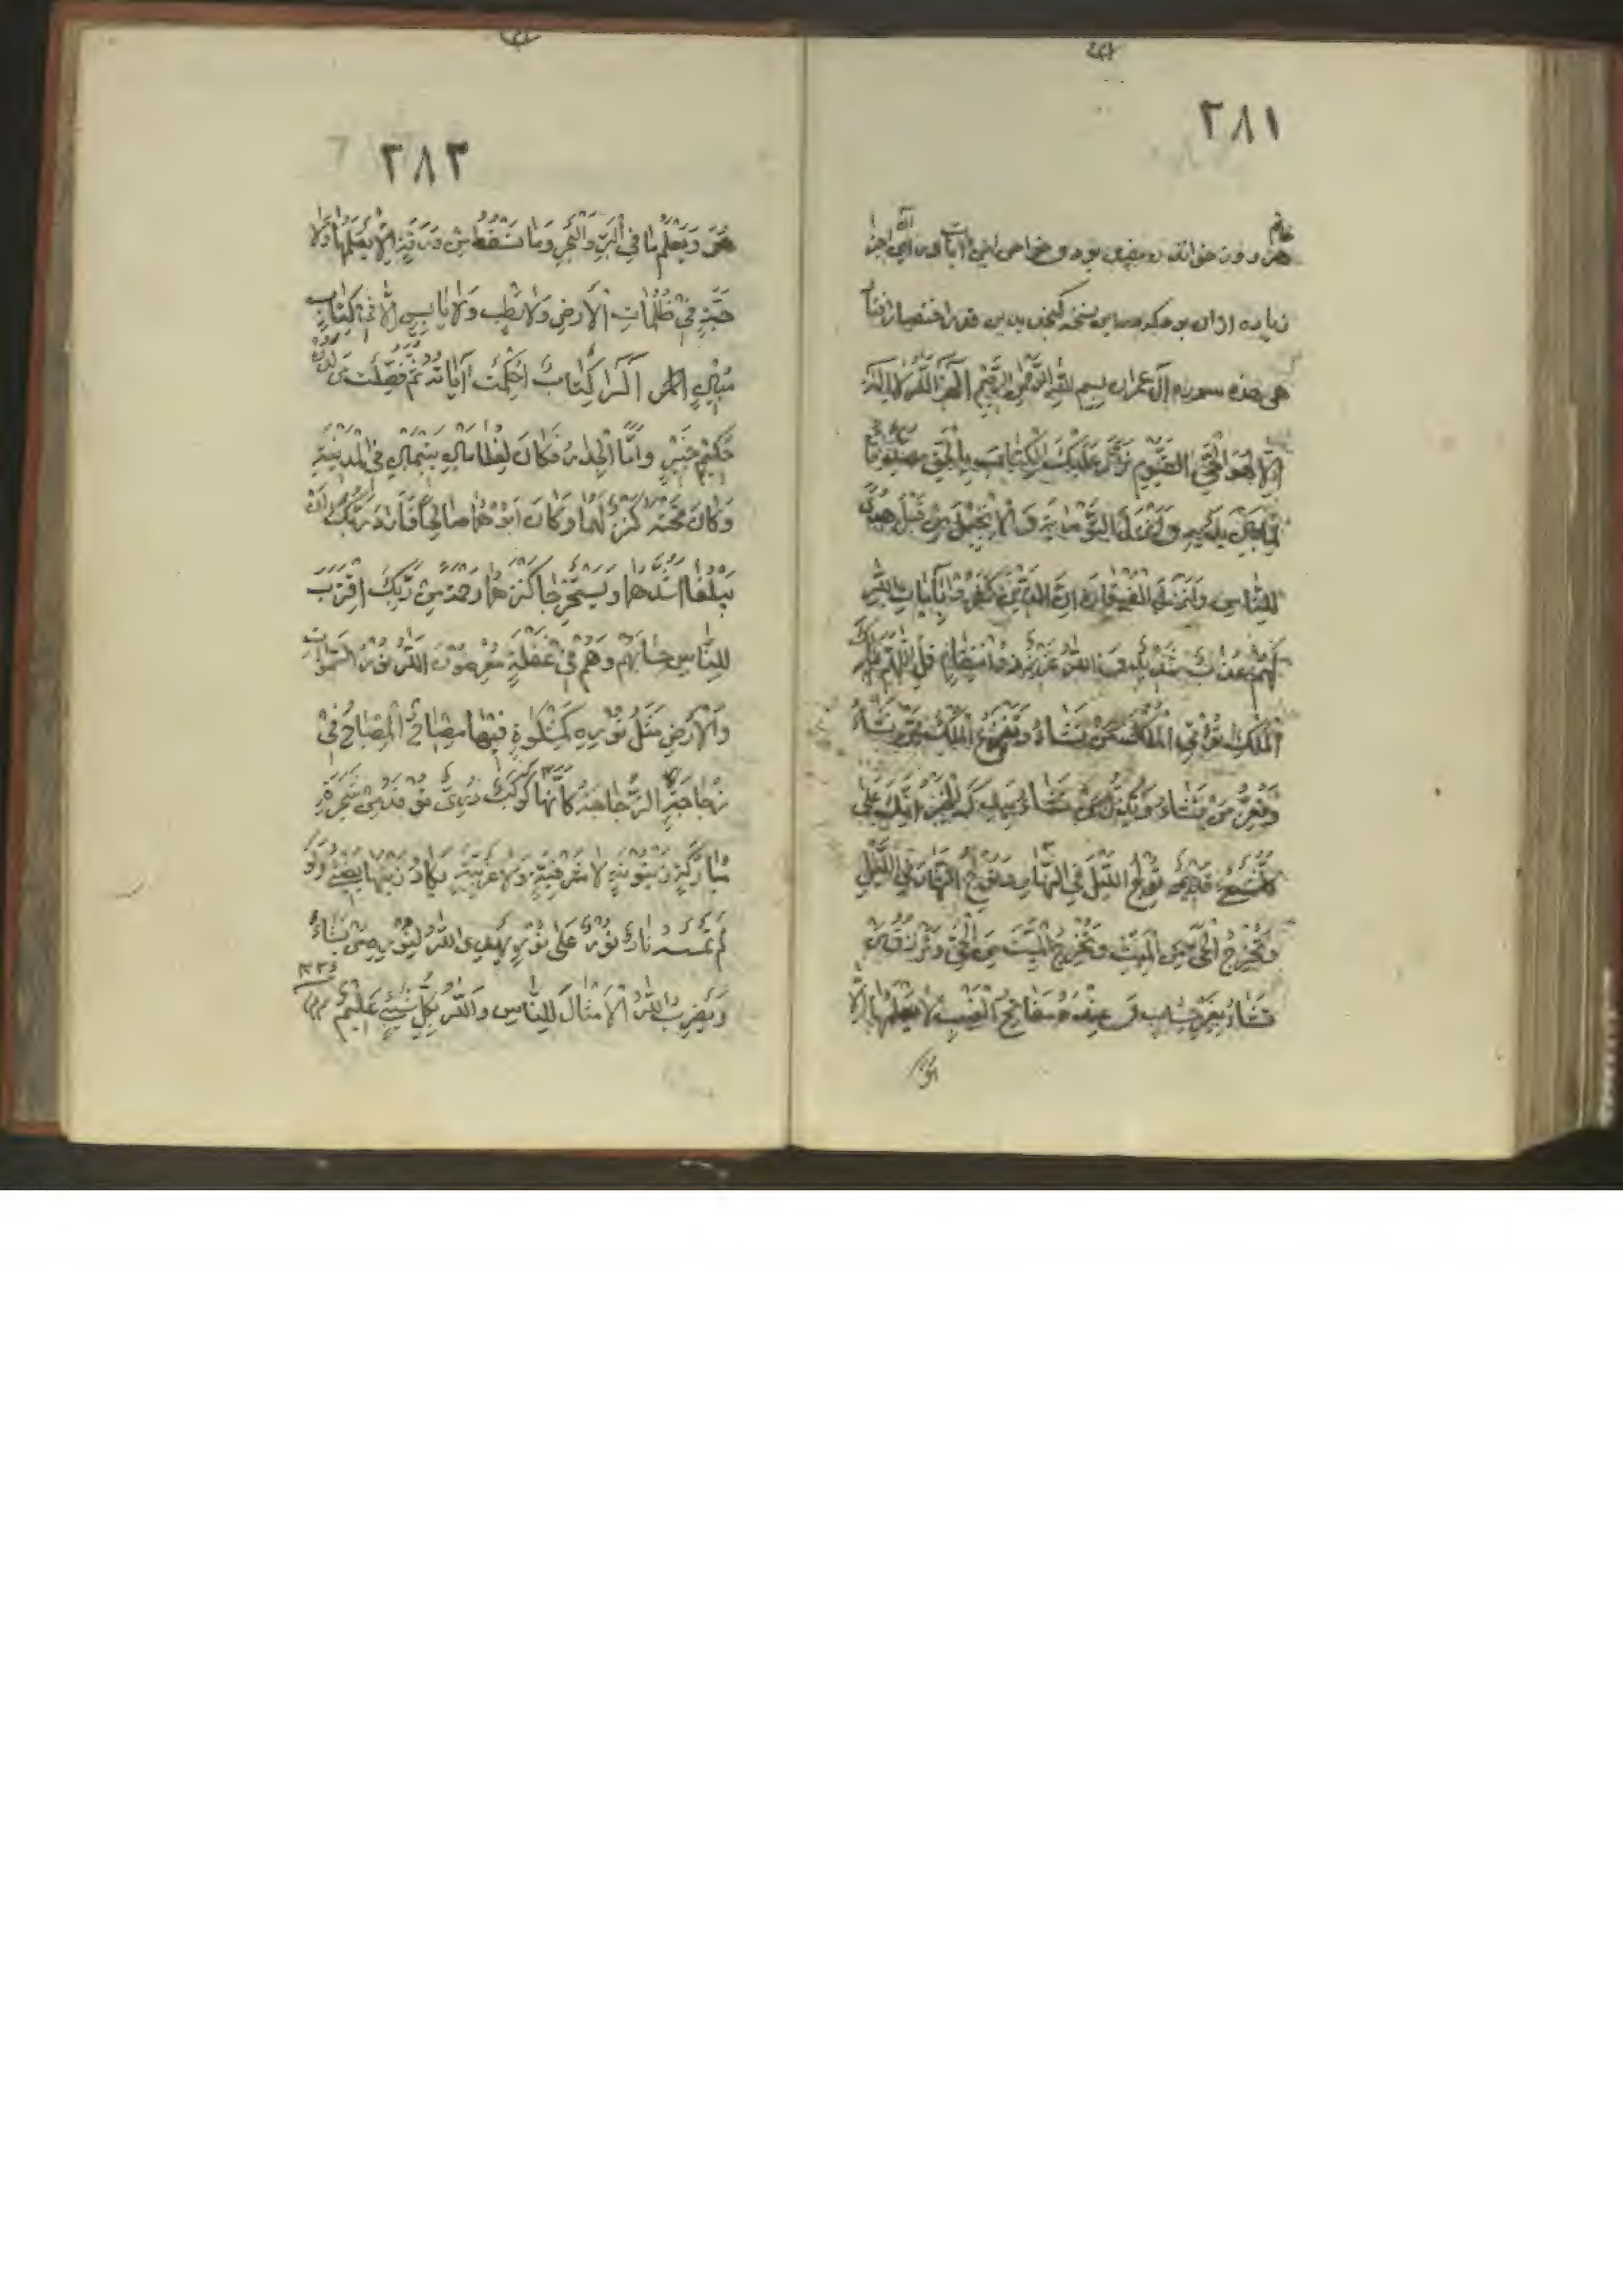 ۲۸۱
هر روز خواند روزی بود و خواص این آیات
زیاده از آن بود که در این نسخه گنجد بدین قدر اختصار افتاد
هی هذه سوره آل عمران بسم الله الرحمن الرحیم الم الله لا اله
الا هو الحی القیوم نزل علیک الکتاب بالحق مصدقا
لما بین یدیه وانزل التوریة والانجیل من قبل هدی
للناس وانزل الفرقان ان الذین کفروا بآیات الله
لهم عذاب شدید والله عزیز ذو انتقام قل اللهم مالک
الملک تؤتی الملک من تشاء وتنزع الملک ممن تشاء
وتعز من تشاء وتذل من تشاء بیدک الخیر انک علی
کل شیء قدیر تولج اللیل فی النهار وتولج النهار فی اللیل
وتخرج الحی من المیت وتخرج المیت من الحی وترزق من
تشاء بغیر حساب وعنده مفاتح الغیب لا یعلمها الا
هو
۲۸۲
هُوَ وَیَعْلَمُ مَا فِی الْبَرِّ وَالْبَحْرِ وَمَا تَسْقُطُ مِنْ وَرَقَةٍ اِلَّا یَعْلَمُهَا وَلَا
حَبَّةٍ فِی ظُلُمَاتِ الْاَرْضِ وَلَا رَطْبٍ وَلَا یَابِسٍ اِلَّا فِی کِتَابٍ
مُبِینٍ الٓرٰ کِتَابٌ اُحْکِمَتْ آیَاتُهُ ثُمَّ فُصِّلَتْ مِنْ لَدُنْ
حَکِیمٍ خَبِیرٍ وَاَمَّا الْجِدَارُ فَکَانَ لِغُلَامَیْنِ یَتِیمَیْنِ فِی الْمَدِینَةِ
وَکَانَ تَحْتَهُ کَنْزٌ لَهُمَا وَکَانَ اَبُوهُمَا صَالِحًا فَاَرَادَ رَبُّکَ اَنْ
یَبْلُغَا اَشُدَّهُمَا وَیَسْتَخْرِجَا کَنْزَهُمَا رَحْمَةً مِنْ رَبِّکَ اِقْتَرَبَ
لِلنَّاسِ حِسَابُهُمْ وَهُمْ فِی غَفْلَةٍ مُعْرِضُونَ اَللّٰهُ نُورُ السَّمٰوَاتِ
وَالْاَرْضِ مَثَلُ نُورِهِ کَمِشْکٰوةٍ فِیهَا مِصْبَاحٌ اَلْمِصْبَاحُ فِی
زُجَاجَةٍ اَلزُّجَاجَةُ کَاَنَّهَا کَوْکَبٌ دُرِّیٌّ یُوقَدُ مِنْ شَجَرَةٍ
مُبَارَکَةٍ زَیْتُونَةٍ لَا شَرْقِیَّةٍ وَلَا غَرْبِیَّةٍ یَکَادُ زَیْتُهَا یُضِیءُ وَلَوْ
لَمْ تَمْسَسْهُ نَارٌ نُورٌ عَلٰی نُورٍ یَهْدِی اللّٰهُ لِنُورِهِ مَنْ یَشَاءُ
وَیَضْرِبُ اللّٰهُ الْاَمْثَالَ لِلنَّاسِ وَاللّٰهُ بِکُلِّ شَیْءٍ عَلِیمٌ